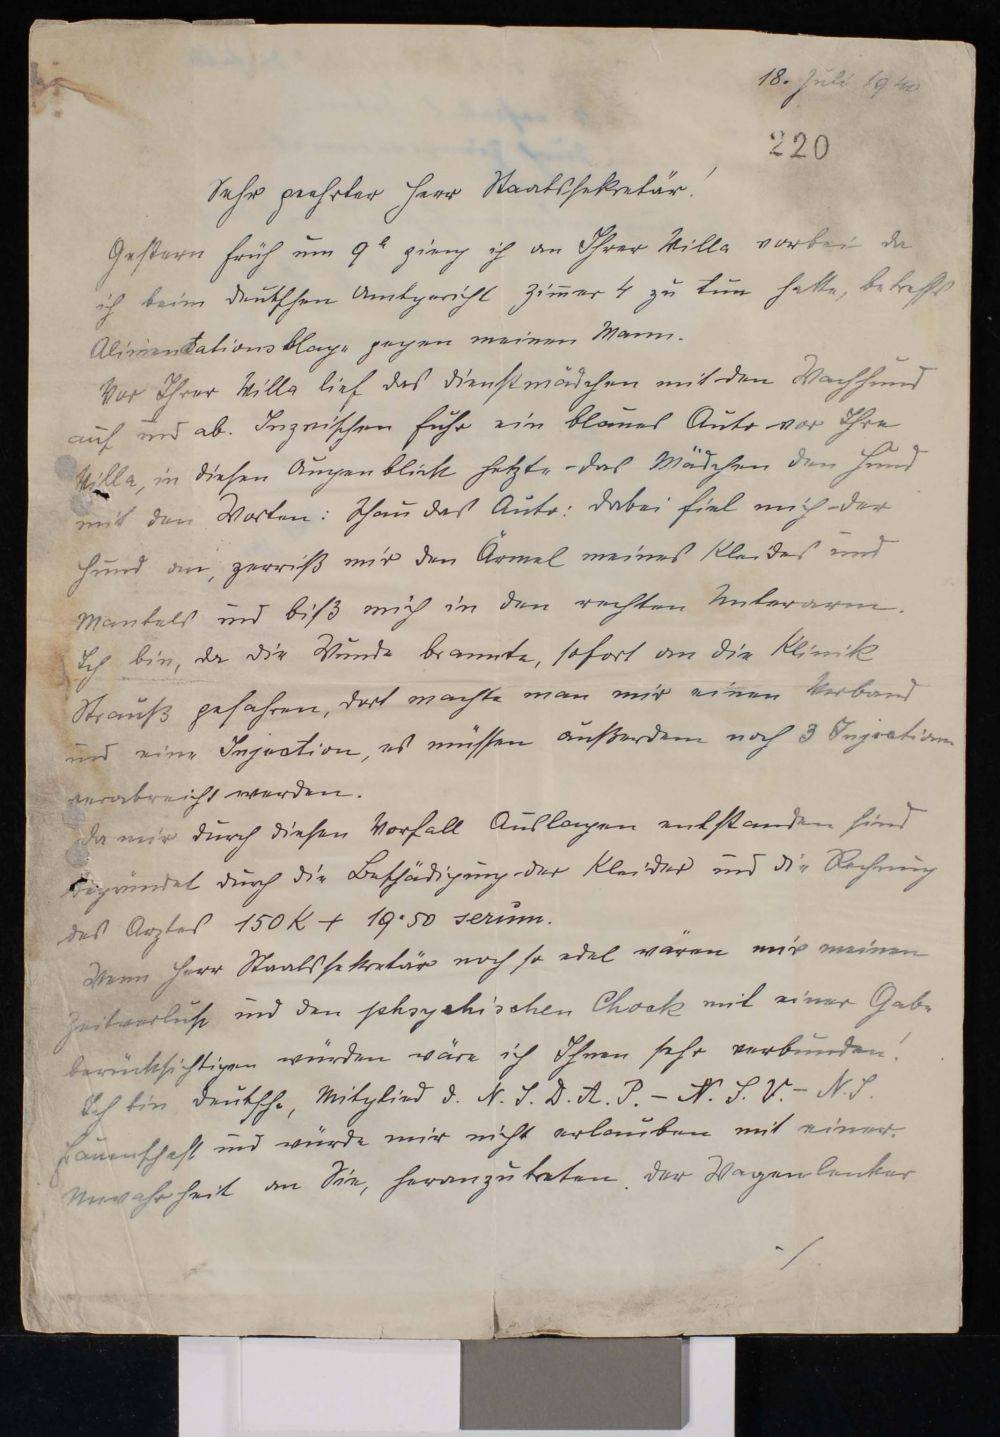 18. Juli 1940
220
Sehr geehrter Herr Staatssekretär!
Gestern früh um 9h gieng ich an Ihrer Villa vorbei da
ich beim deutschen Amtsgericht Zimmer 4 zu tun hatte, betreffs
Alimentationsklage gegen meinen Mann.
Vor Ihrer Villa lief das Dienstmädchen mit den Wachhund
auf und ab. Inzwischen fuhr ein blaues Auto vor Ihre
Villa, in diesen Augenblick hetzte das Mädchen den Hund
mit den Worten: Schau das Auto: dabei fiel mich der
Hund an, zerriß mir den Ärmel meines Kleides und
Mantels und biß mich in den rechten Unterarm.
Ich bin, da die Wunde brannte, sofort an die Klinik
Strauß gefahren, dort machte man mir einen Verband
und eine Injection, es müssen außerdem noch 3 Injectionen
verabreicht werden.
Da mir durch diesen Vorfall Auslagen entstanden sind
begründet durch die Beschädigung der Kleider und die Rechnung
des Arztes 150 K + 19·50 serum.
Wenn Herr Staatssekretär noch so edel wären mir meinen
Zeitverlust und den phsychischen Chock mit einer Gabe
berücksichtigen würden wäre ich Ihnen sehr verbunden!
Ich bin Deutsche, Mitglied d. N.S.D.A.P. – N.S.V. – N.S.
Frauenschaft und würde mir nicht erlauben mit einer
Unwahrheit an Sie, heranzutreten. Der Wagenlenker
./